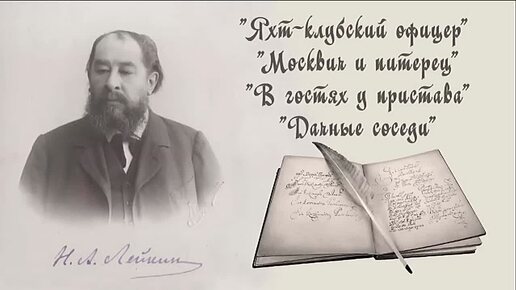 "Яхт-клубский офицер"
"Москвич и питерец"
"В гостях у пристава"
"Дачные соседи"
Н. А. Лейкин